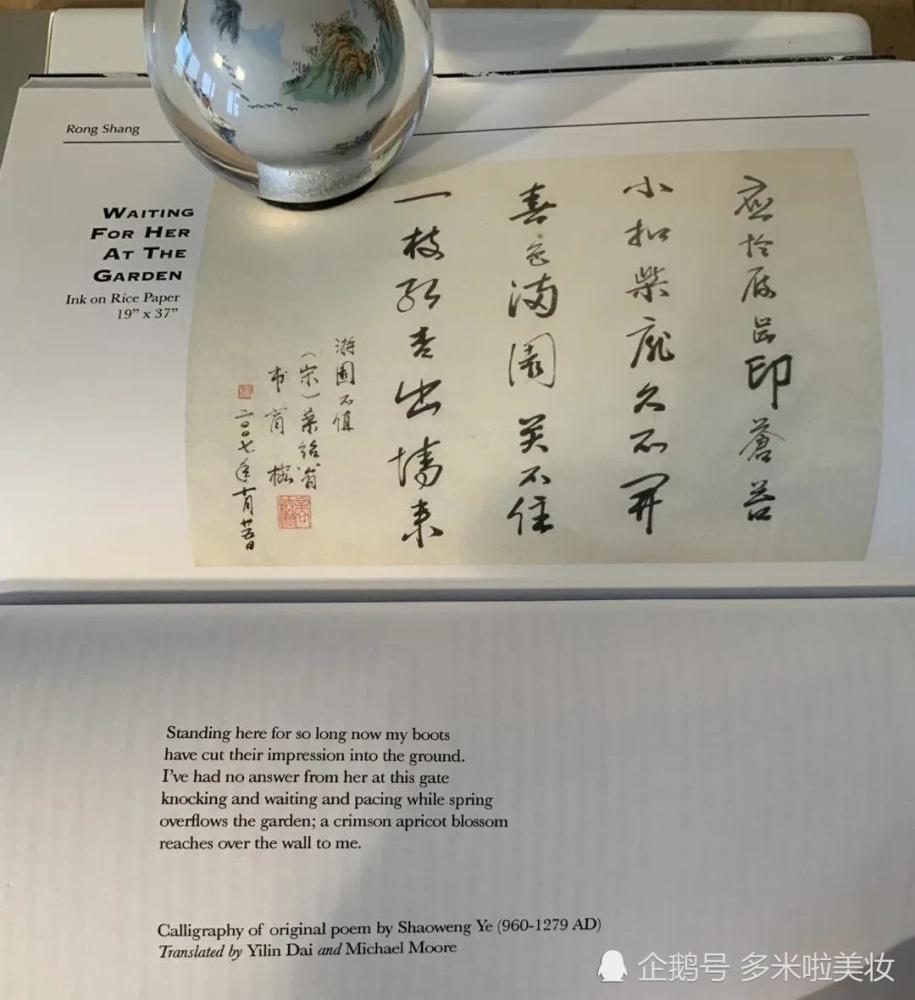 Rong Shang
WAITING
FOR HER
AT THE
GARDEN
Ink on Rice Paper
19” x 37”
应怜屐齿印蒼苔
小扣柴扉久不開
春色满園关不住
一枝红杏出墙来
游園不值
（宋）葉紹翁
书商榕
二〇〇七年十月廿五日
Standing here for so long now my boots
have cut their impression into the ground.
I’ve had no answer from her at this gate
knocking and waiting and pacing while spring
overflows the garden; a crimson apricot blossom
reaches over the wall to me.
Calligraphy of original poem by Shaoweng Ye (960-1279 AD)
Translated by Yilin Dai and Michael Moore
企鹅号 多米啦美妆